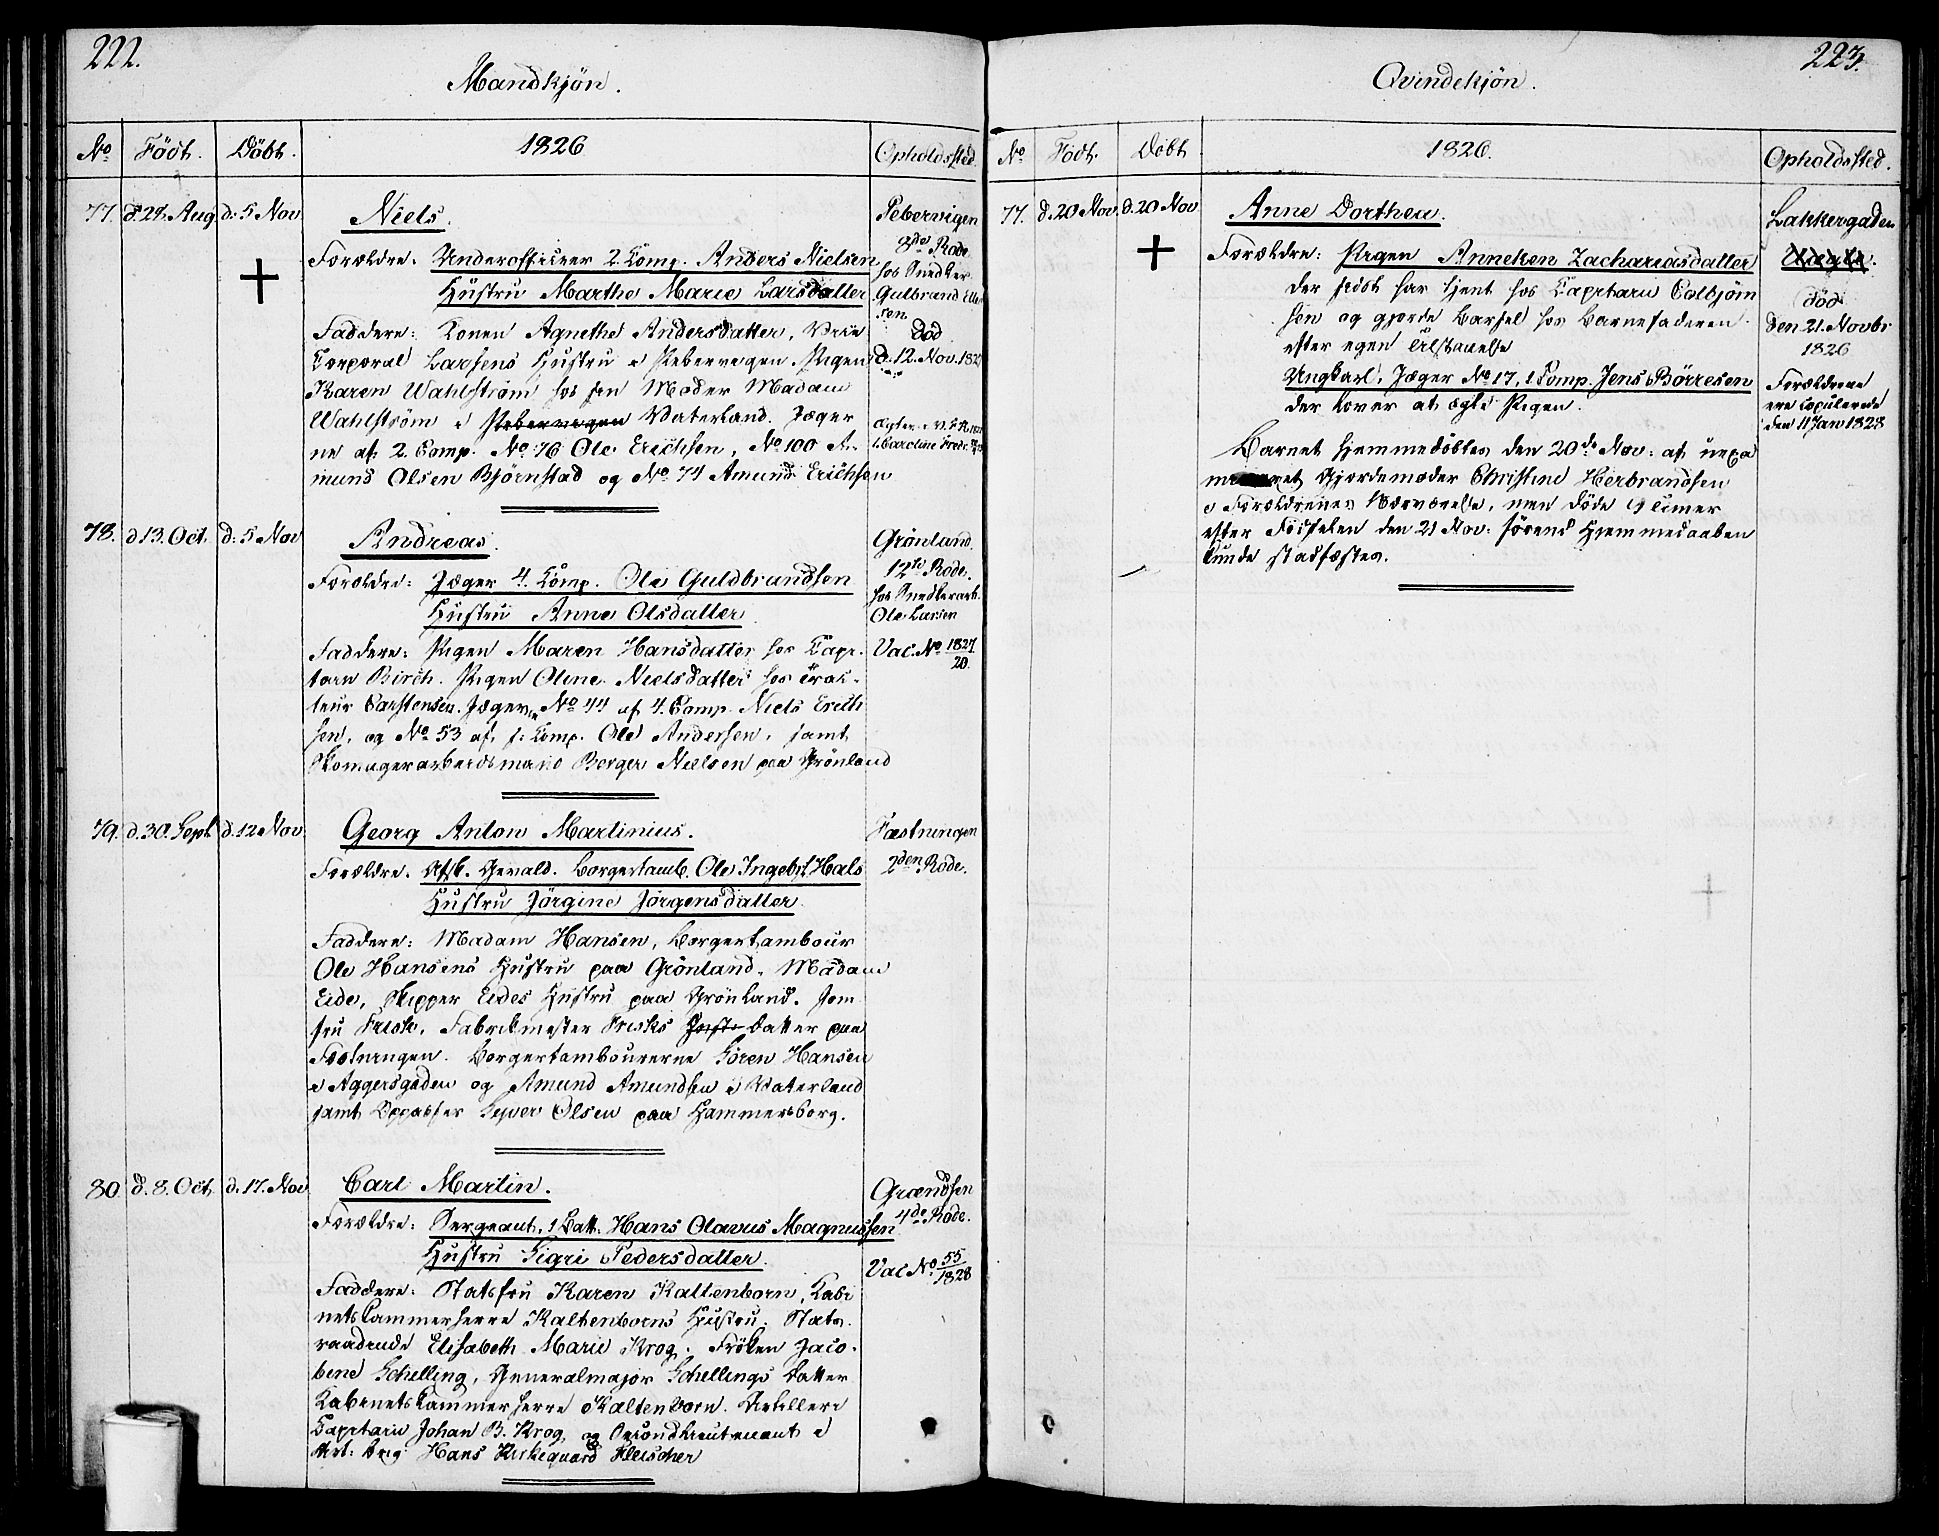 222.
Mandkjön.
No Födt. Döbt. 1826 Opholdssted.
77. d. 29. Aug d. 5 Nov Niels.
Forældre: Underofficeer 2. Comp. Anders Nielsen
Hustru Marthe Marie Larsdatter
Faddere: Konen Agnethe Andersdatter, Vice
Corporal Larsens Hustru i Pebervigen. Pigen
Karen Wahlström hos sin Moder Madam
Wahlström i Pebervigen Vaterland. Jæger
ne af 2. Comp. No 76 Ole Erichsen, No 100 A-
mund Olsen Björnstad og No 74 Amund Erichsen
Pebervigen
8de Rode
hos Snedker
Gulbrand Ole
sen.
död
d. 12. Nov. 182
78. d. 13. Oct. d. 5 Nov Andreas.
Forældre: Jæger 4. Comp. Ole Guldbrandsen
Hustru Anne Olsdatter
Faddere: Pigen Maren Hansdatter hos Capi-
tain Birch. Pigen Oline Nielsdatter hos Trak-
teur Carstensen. Jægerne No 44 af 4. Comp. Niels Erich
sen, og No 53 af s: Comp. Ole Andersen, samt
Skomagerarbeidsmand Berger Nielsen paa Grönland
Grönland.
12te Rode.
hos Snedkerarb.
Ole Larsen
Vac. No 1827/20.
79. d. 30. Sept. d. 12 Nov. Georg Anton Martinius.
Forældre: Afsk. Gevald. Borgertamb. Ole Ingebr. Hals
Hustru Jörgine Jörgensdatter.
Faddere: Madam Hansen, Borgertambour
Ole Hansens Hustru paa Grönland. Madam
Eide, Skipper Eides Hustru paa Grönland. Jom-
fru Frisk, Fabrikmester Frisks Datter paa
Fæstningen. Borgertambourerne Sören Hansen
i Aggersgaden og Amund Amundsen i Vaterland
samt Oppasser Syver Olsen paa Hammersborg.
Fæstningen
2den Rode.
80 d. 8. Oct. d. 17. Nov Carl Martin.
Forældre: Sergeant, 1 Batt. Hans Olavus Magnussen
Hustru Sigri Pedersdatter.
Faddere: Statsfru Karen Kaltenborn, Cabi
netskammerherre Kaltenborns Hustru. Stats-
raadinde Elisabeth Marie Krog. Fröken Jaco-
bine Schelling, Generalmajor Schellings Datter
Kabinetskammerherre Kaltenborn. Artilleri
Capitain Johan B. Krog, og Secondlieutenant i
Art: Brig Hans Kirkegaard Fleischer
Grændsen
4de Rode.
Vac No 55/1828
223.
Qvindekjön.
No Födt. Döbt 1826. Opholdssted.
77. d. 20 Nov. d. 20 Nov Anne Dorthea.
Forældre: Pigen Anneken Zachariasdatter
der sidst har tjent hos Capitain Colbjörn
sen og gjorde Barsel hos Barnefaderen
efter egen Tilstaaelse
Ungkarl, Jæger No 17, 1 Comp. Jens Börresen
der lover at ægte Pigen.
Barnet hjemmedöbtes den 20de Nov: af uexa
mineret Gjordemoder Christine Herbrandsen
i Forældrenes Nærværelse, men döde 9 Timer
efter Födselen den 21 Nov: förend Hjemmedaaben
kunde stadfæstes.
Lakkergaden
Uægte.
död
den 21. Novbr
1826
Forældrene
ere Copulerede
den 11 Jan 1828